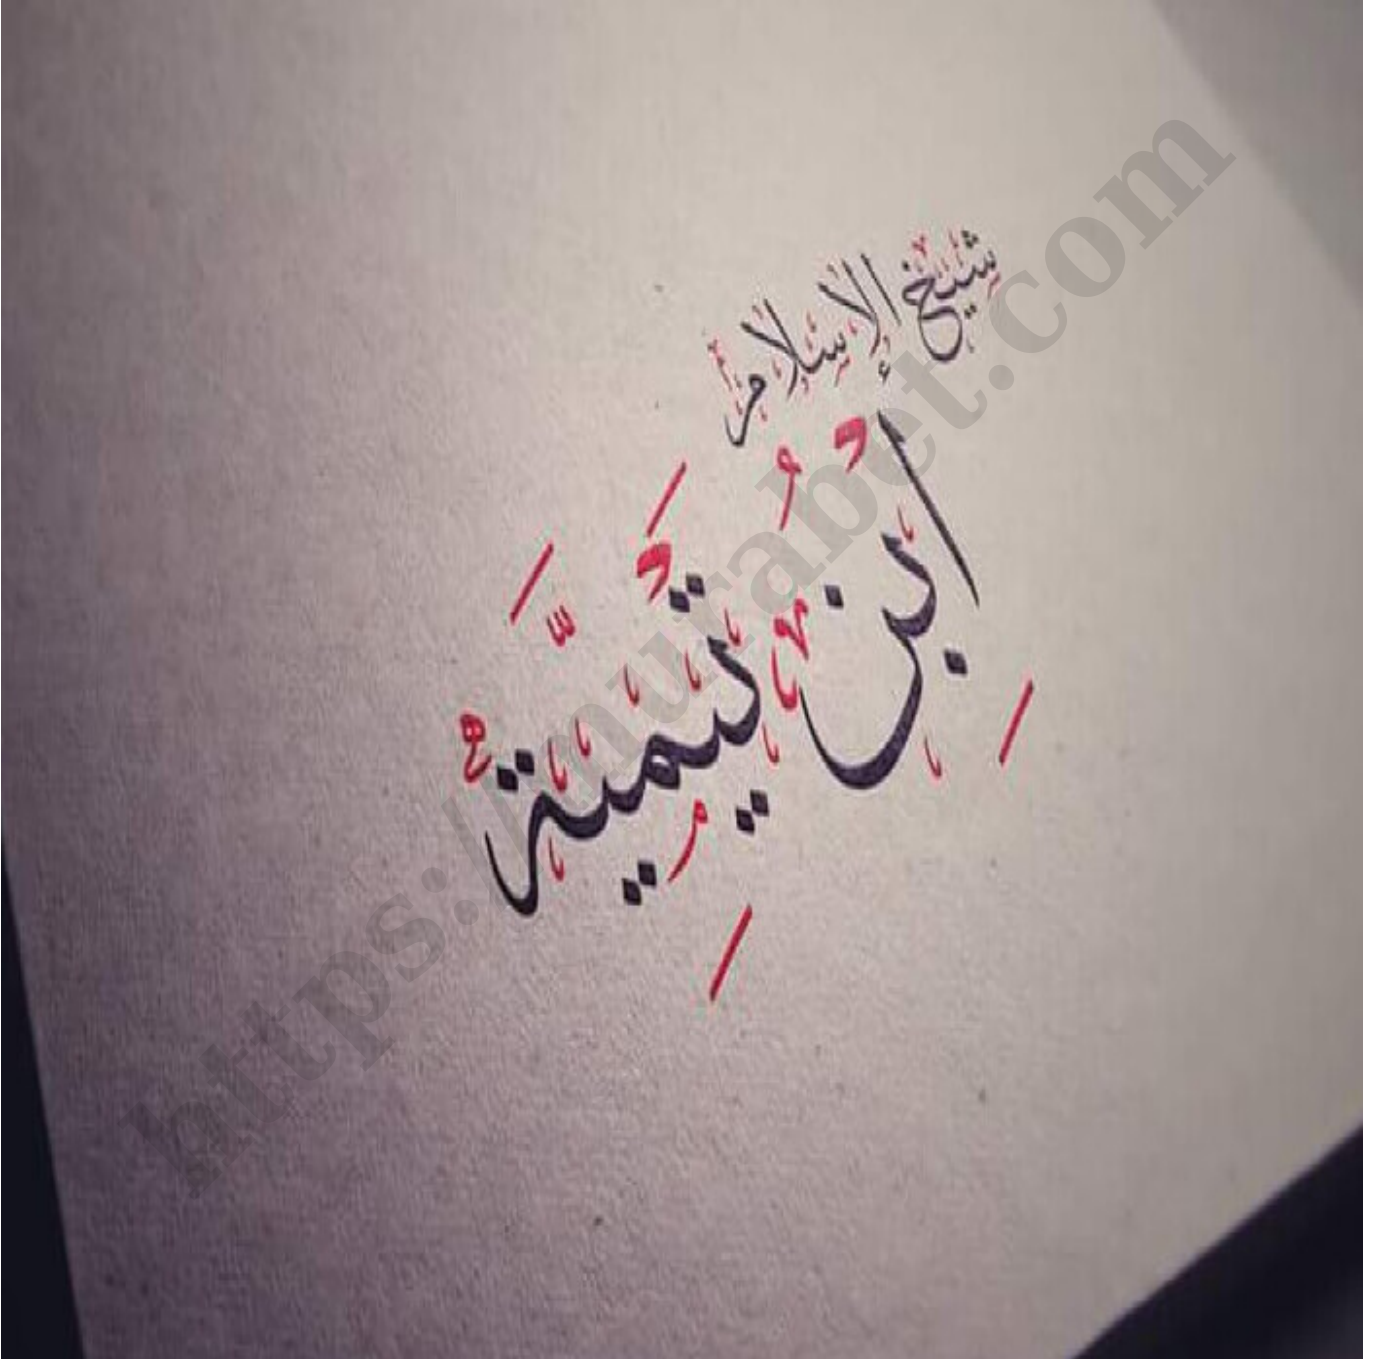 شيخ الإسلام
ابنُ تَيمِيَّة
https://murabet.com